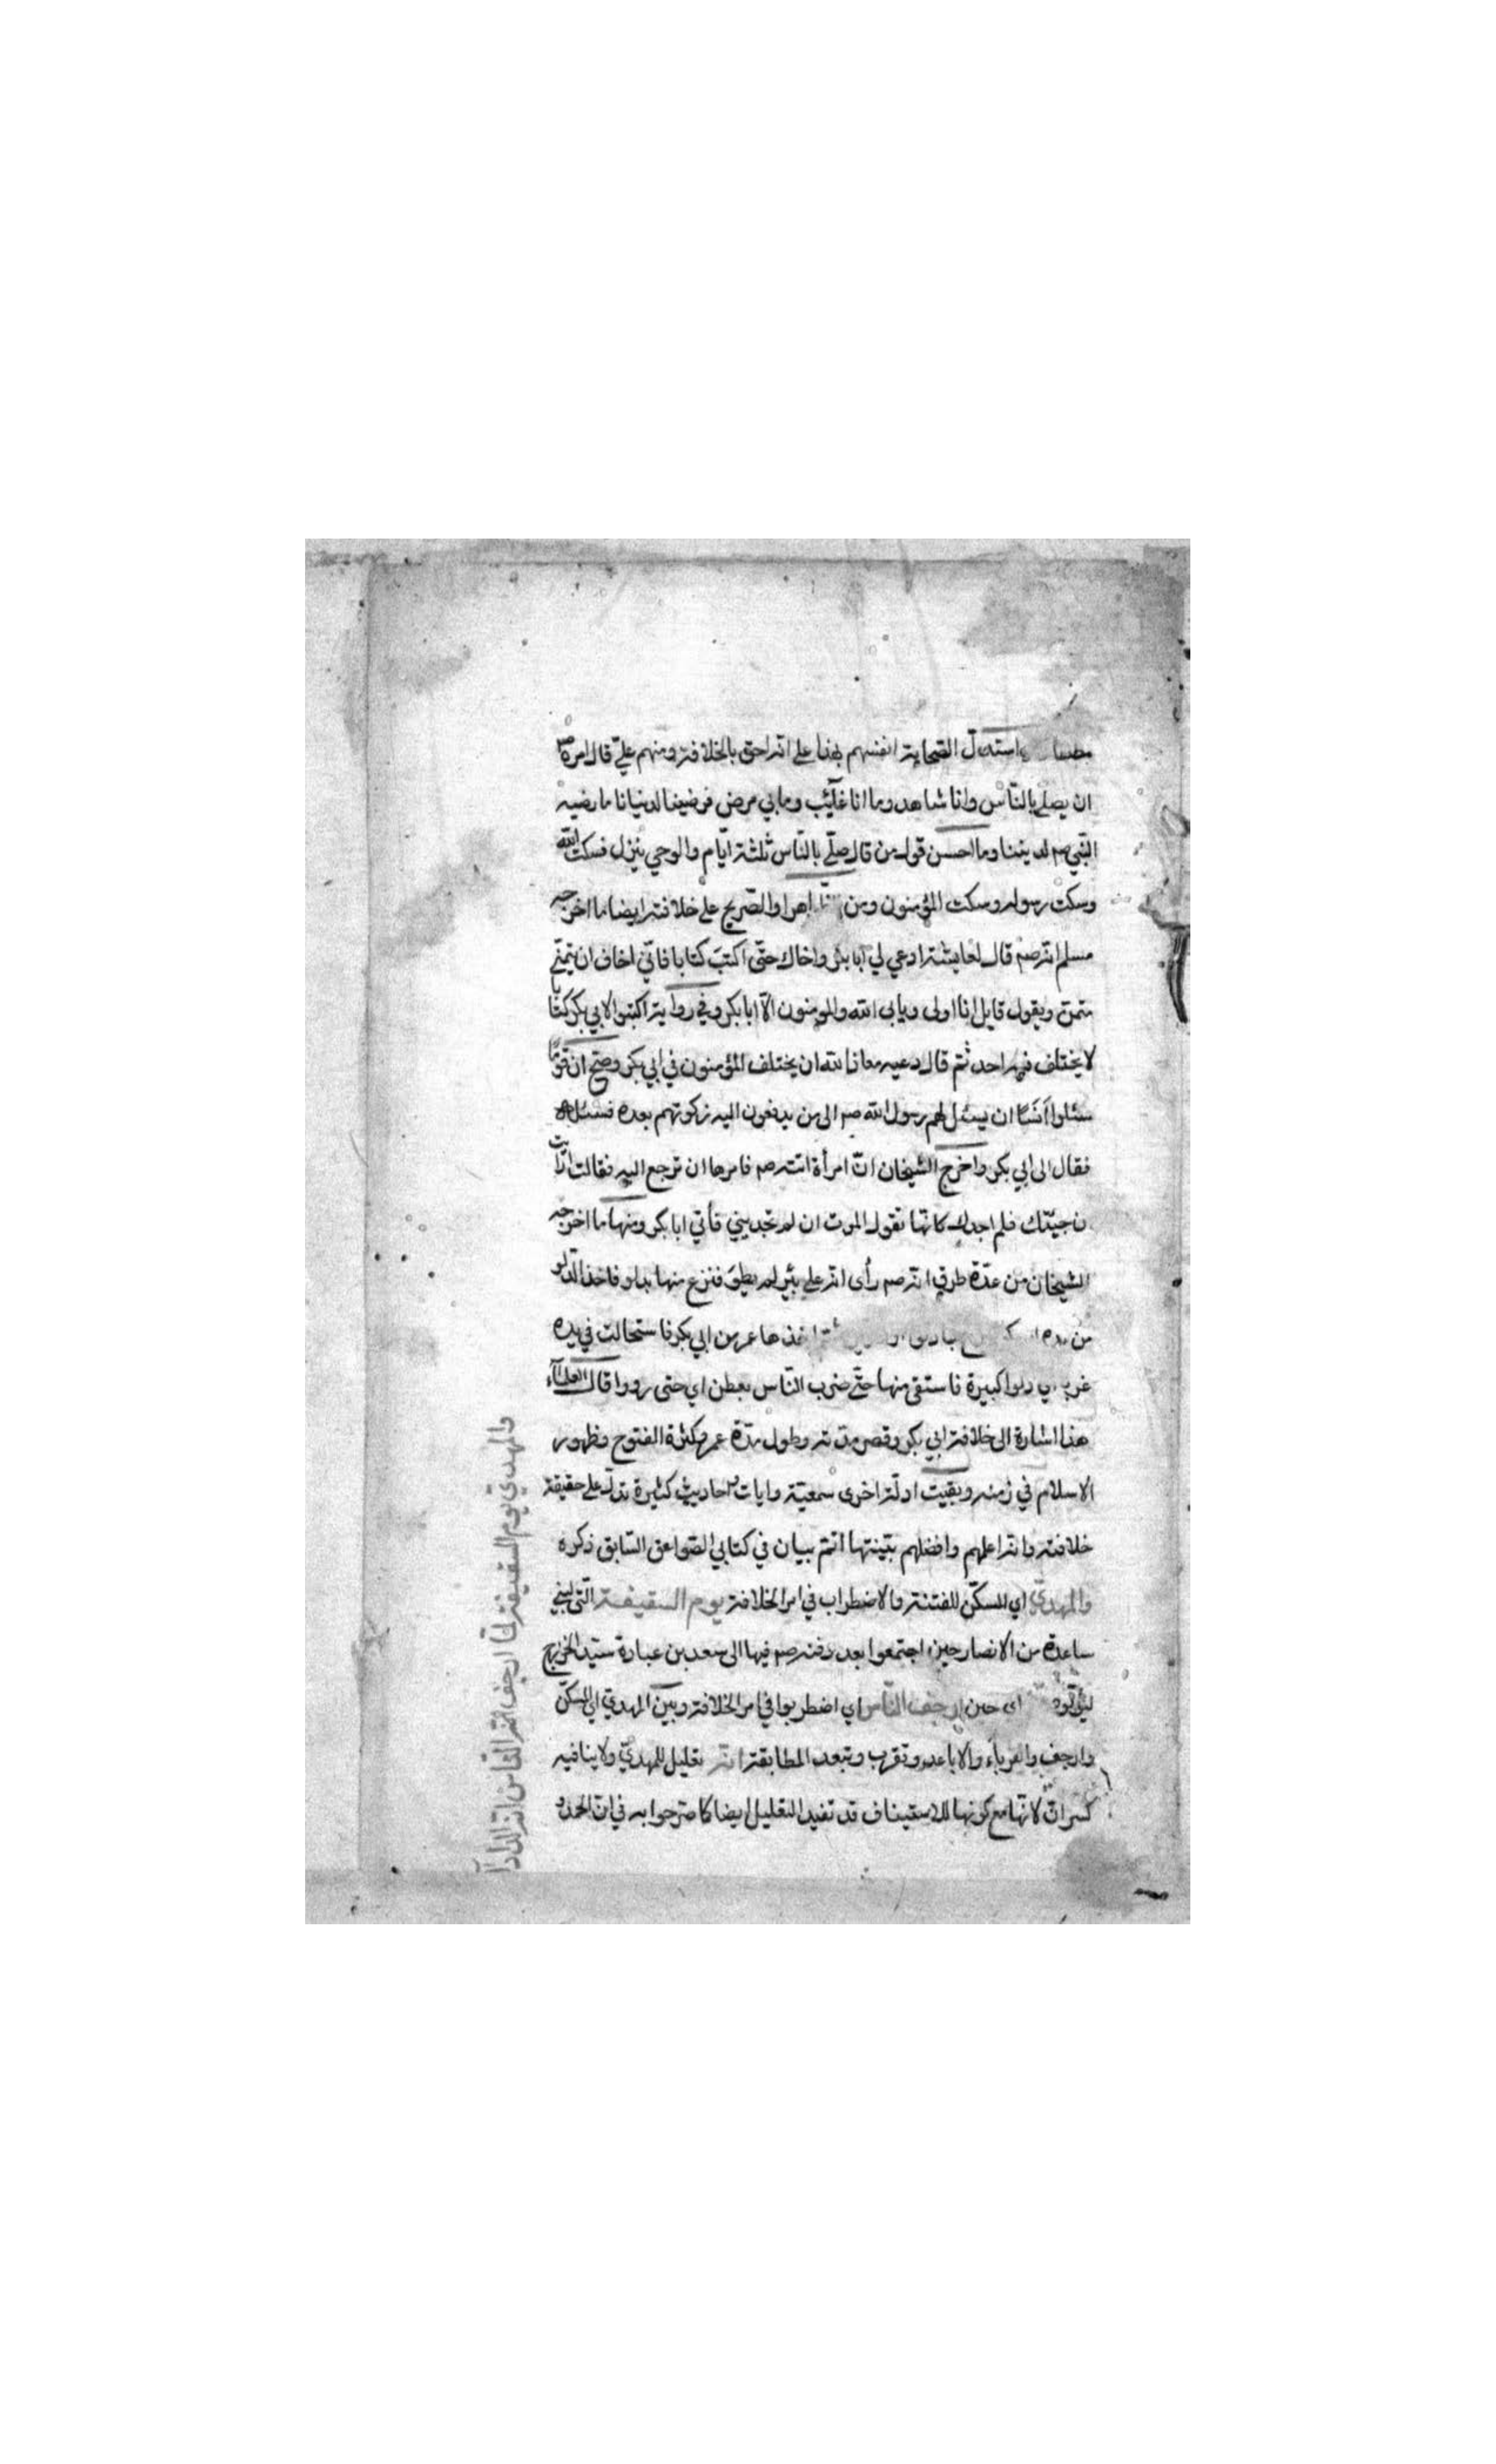 واستدل الصحابة انفسهم بهذا على انه احق بالخلافة ومنهم علي قال امره صم
ان يصلي بالناس وانا شاهد وما انا غآئب وما بي مرض فرضينا لدنيانا ما رضيه
النبي صم لديننا وما احسن قول من قال صلي بالناس ثلثة ايام والوحي ينزل فسكت الله
وسكت رسوله وسكت المؤمنون ومن الصريح على خلافته ايضا ما اخرجه
مسلم انه صم قال لعايشة ادعي لي ابا بكر واخاك حتى اكتب كتابا فاني اخاف ان يتمنى
متمن ويقول قايل انا اولى ويابى الله والمومنون الا ابا بكر وفي رواية اكتبوا لابي بكر كتابا
لا يختلف فيه احد ثم قال دعيه معاذ الله ان يختلف المؤمنون في ابي بكر وصح ان قوما
سئلوا انسا ان يسئل لهم رسول الله صم الى من يدفعون اليه زكوتهم بعده فسئله
فقال الى ابي بكر واخرج الشيخان ان امرأة اتته صم فامرها ان ترجع اليه فقالت ارايت
ان جيتك فلم اجدك كانها تقول الموت ان لم تجديني فأتي ابا بكر ومنها ما اخرجه
الشيخان من عدة طرق انه صم رأى انه على بئر لم يطو فنزع منها بدلو فاخذ الدلو
من يده اخذها عمر من ابي بكر فاستحالت في يده
غربا اي دلوا كبيرة فاستقى منها حتى ضرب الناس بعطن اي حتى رووا قال العلمآء
هذا اشارة الى خلافة ابي بكر وقصر مدته وطول مدة عمر وكثرة الفتوح وظهور
الاسلام في زمنه وبقيت ادلة اخرى سمعية وايات واحاديث كثيرة تدل على حقيقة
خلافته وانه اعلمهم وافضلهم بينتها اتم بيان في كتابي الصواعق السابق ذكره
والمهدي اي المسكن للفتنة والاضطراب في امر الخلافة يوم السقيفة التي لبني
ساعدة من الانصار حين اجتمعوا بعد دفنه صم فيها الى سعد بن عبادة سيد الخزرج
ليؤمروه اي حين ارجف الناس اي اضطربوا في امر الخلافة وبين المهدي اي المسكن
وارجف والقرباء والاباعد وتقرب وتبعد المطابقة انه تعليل للمهدي ولا ينافيه
كسر ان لانها مع كونها للاستيناف قد تفيد التعليل ايضا كما صرحوا به في ان الحمد و
والمهدي يوم السقيفة لما ارجف الناس انه الدادآ